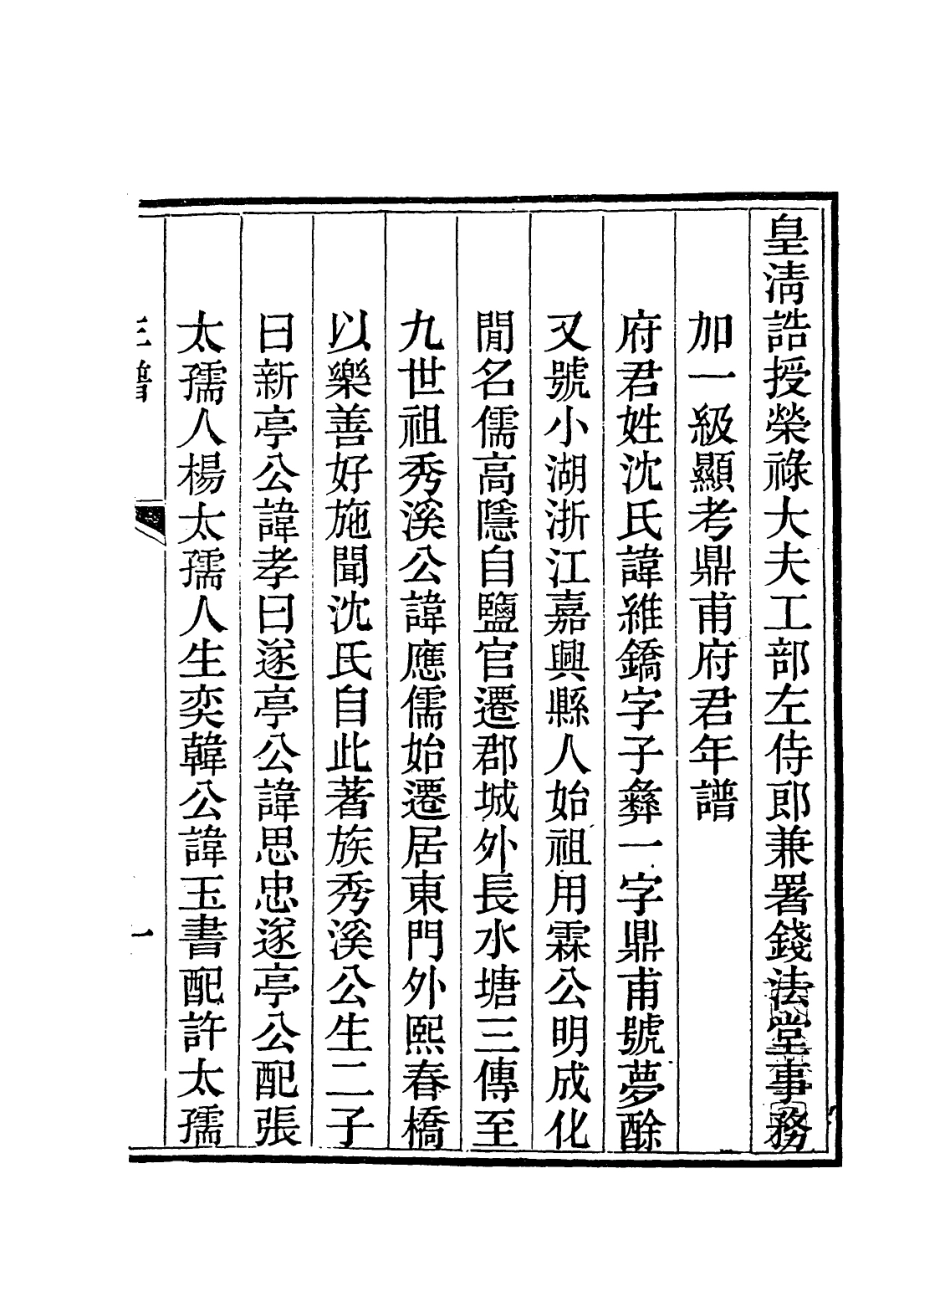 皇淸誥授榮祿大夫工部左侍郎兼署錢法堂事務
加一級顯考鼎甫府君年譜
府君姓沈氏諱維鐈字子彝一字鼎甫號夢酴
又號小湖浙江嘉興縣人始祖用霖公明成化
閒名儒高隱自鹽官遷郡城外長水塘三傳至
九世祖秀溪公諱應儒始遷居東門外熙春橋
以樂善好施聞沈氏自此著族秀溪公生二子
曰新亭公諱孝曰遂亭公諱思忠遂亭公配張
太孺人楊太孺人生奕韓公諱玉書配許太孺
年譜
一